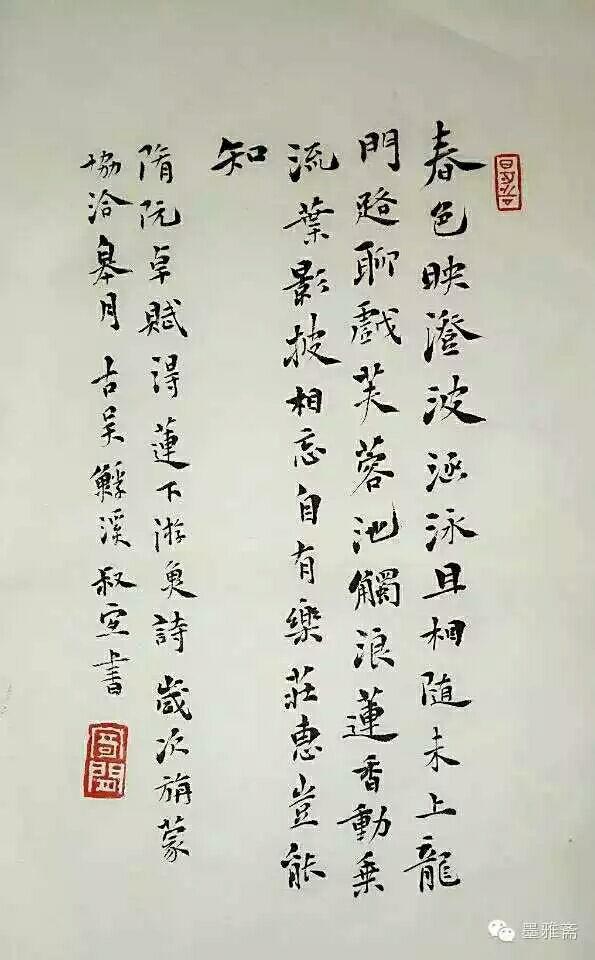 春色映澄波涵泳且相隨未上龍
門路聊戲芙蓉池觸浪蓮香動乗
流葉影披相忘自有樂莊惠豈能
知
隋阮卓賦得蓮下游魚詩歲次旃蒙
協洽皋月古吴鰕溪叔宣書
墨雅斋